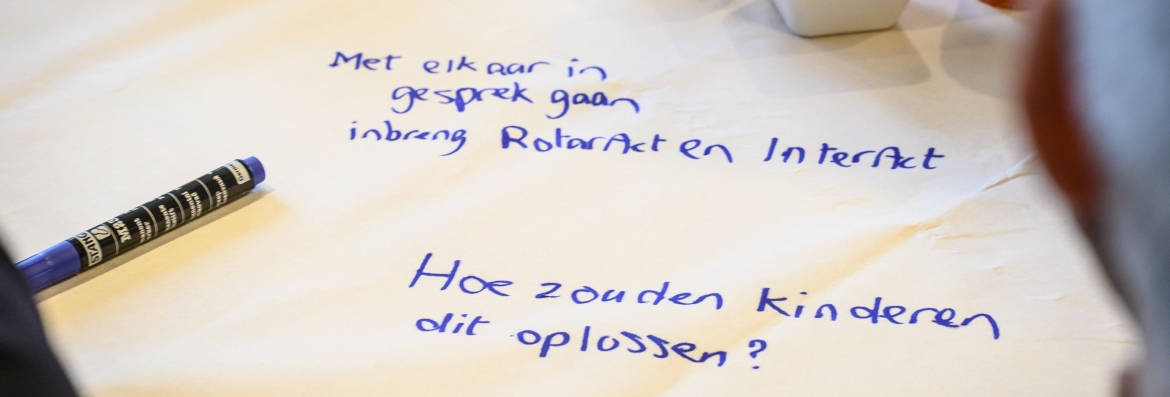 Met elkaar in
gesprek gaan
inbreng RotarAct en InterAct
Hoe zouden kinderen
dit oplossen?